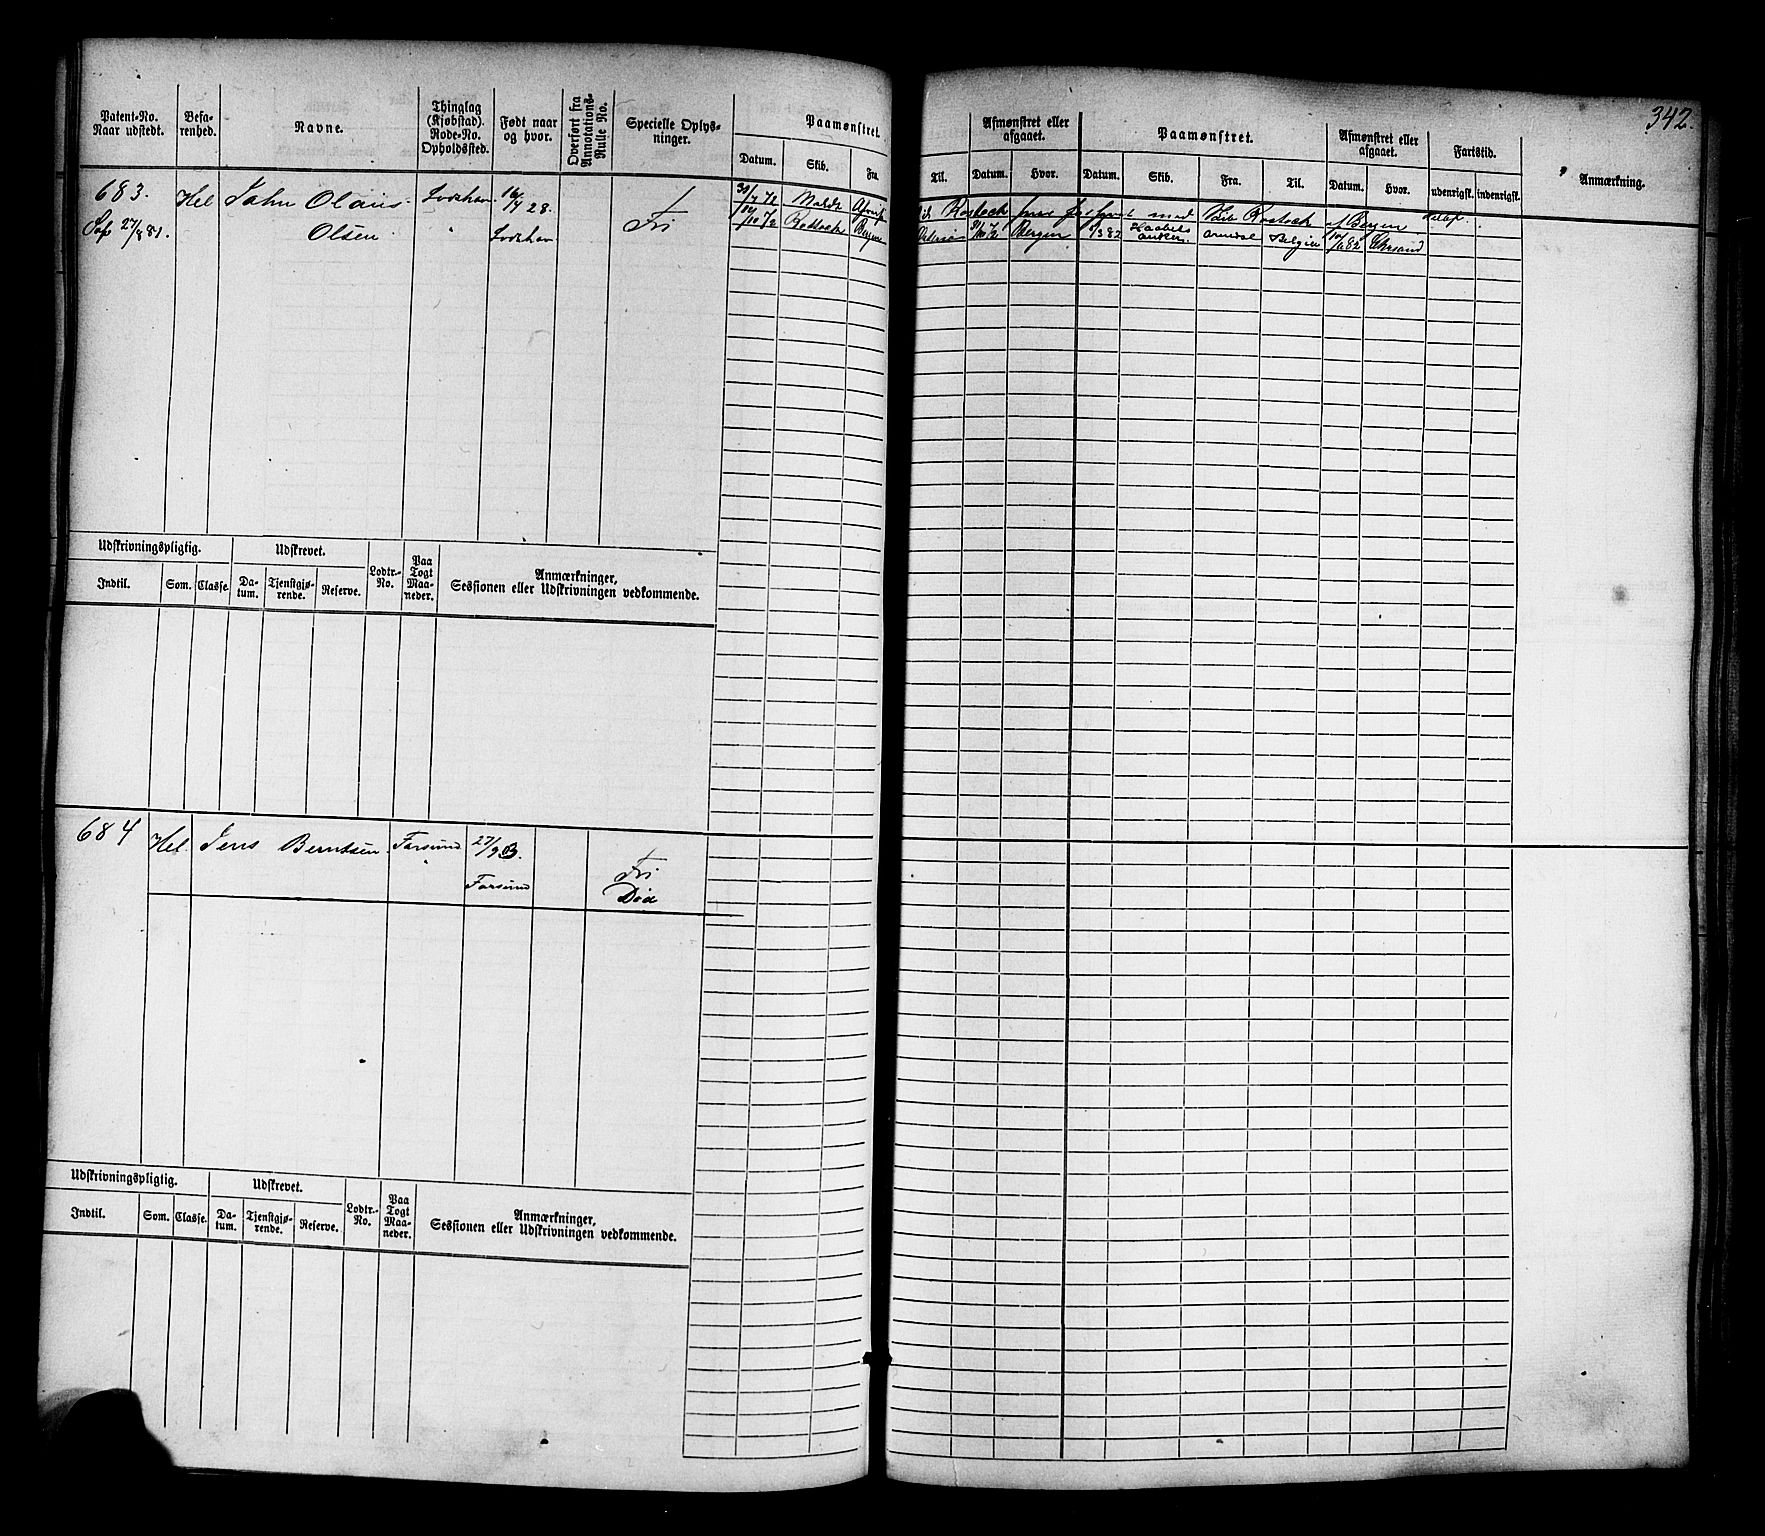 342.
Patent-No. Naar udstedt.
Befarenhed.
Navne.
Thinglag (Kjøbstad). Rode-No. Opholdssted.
Født naar og hvor.
Overført fra Annotations-Rulle No.
Specielle Oplysninger.
Paamønstret.
Datum. Skib. Fra.
Til.
Afmønstret eller afgaaet.
Datum. Hvor.
Paamønstret.
Datum. Skib. Fra. Til.
Afmønstret eller afgaaet.
Datum. Hvor.
Fartstid.
udenrigsk. indenrigsk.
Anmærkning.
683. Hel John Olaus 16/4 28. 31/7 72
27/8 81. Olsen Fri 14/10 72 Rostock Bergen
31/10 72 Bergen 8/3 82 Haabets Anker Arendal Belgien 10/6 82 Chrsand
Udskrivningspligtig.
Udskrevet.
Lodtr.-No.
Paa Togt Maaneder.
Anmærkninger, Sessionen eller Udskrivningen vedkommende.
Indtil. Som. Classe. Datum. Tjenstgjørende. Reserve.
684 Hel. Jens Berntsen Farsund 27/9
Farsund Fri
Død
Udskrivningspligtig.
Udskrevet.
Lodtr.-No.
Paa Togt Maaneder.
Anmærkninger, Sessionen eller Udskrivningen vedkommende.
Indtil. Som. Classe. Datum. Tjenstgjørende. Reserve.